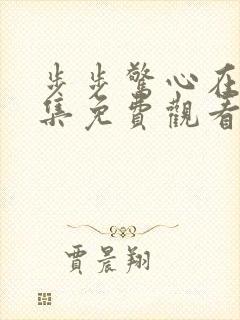 步步驚心在
集免費觀看
賈晨翔